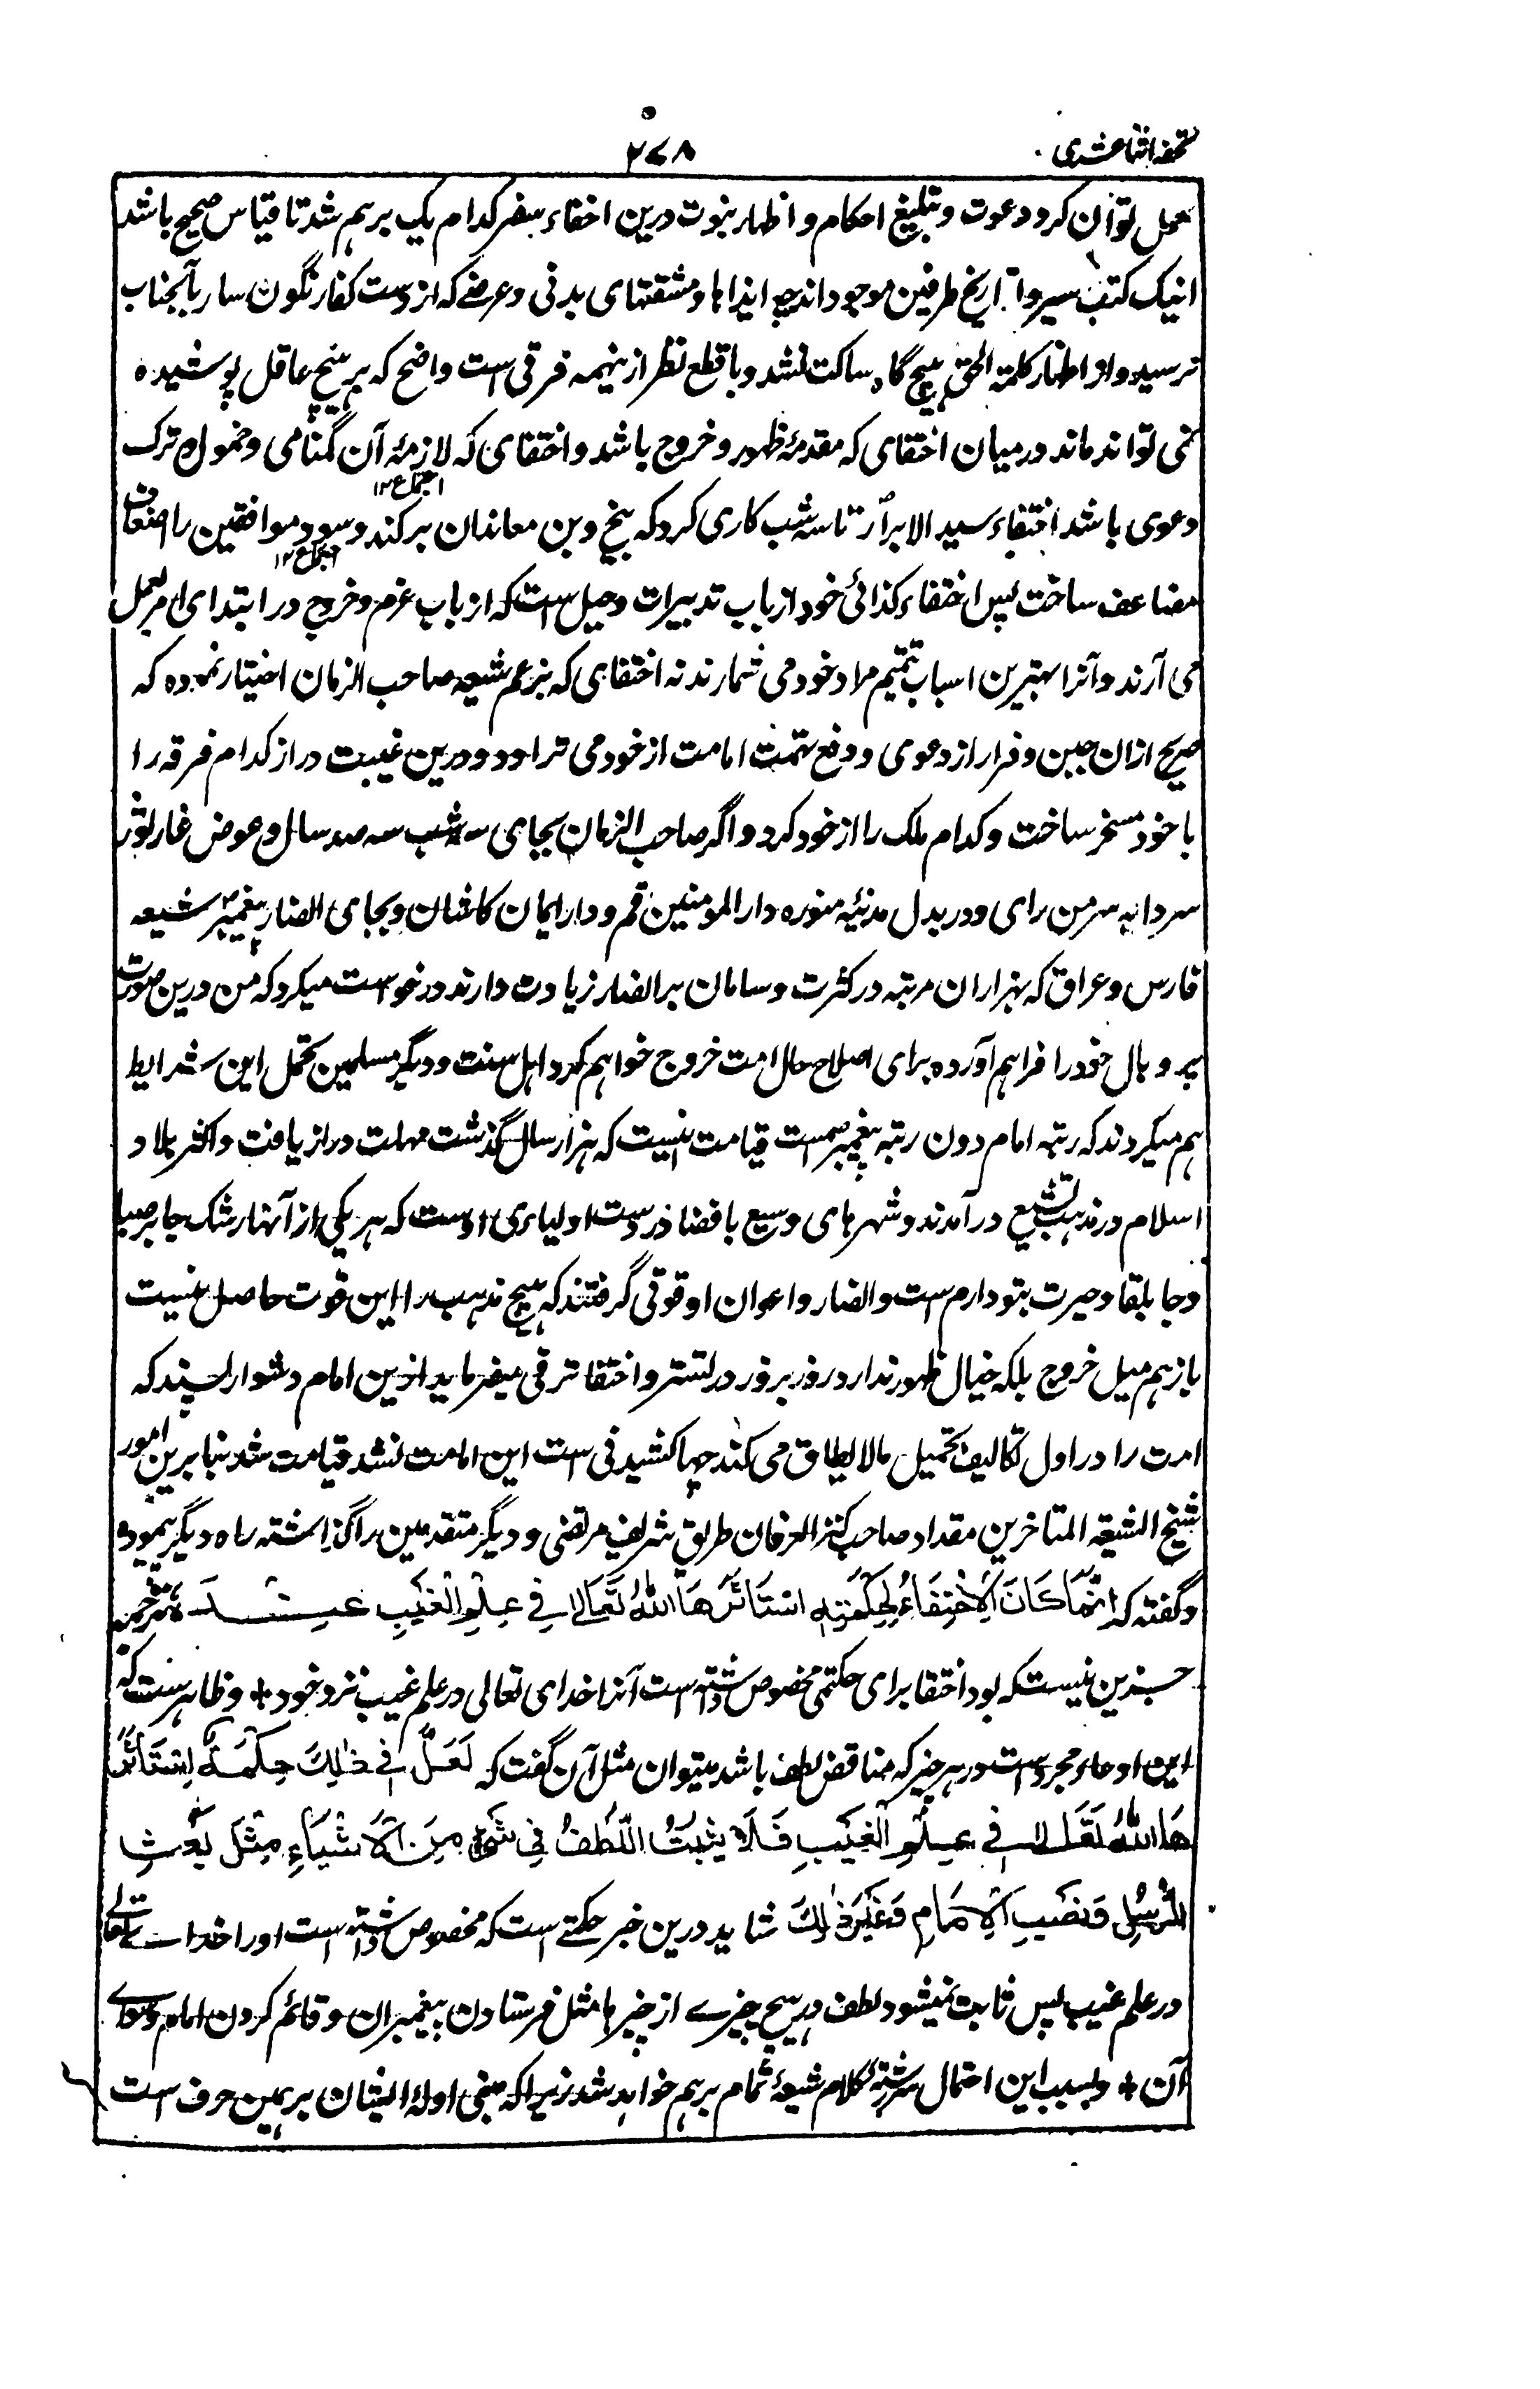 تحفه اثنا عشری
۲۷۸
تعمل توان کرد و دعوت و تبلیغ احکام و اظهار نبوت درین اختفاء سفر کدام یک برهم شد تا قیاس صحیح باشد
اینک کتب سیر و تواریخ طرفین موجود اند چه ایذاها و مشقتهای بدنی و عرضے که از دست کفار نگون سار بآنجناب
نرسید و از اظهار کلمة الحق هیچ گاه ساکت نشد و با قطع نظر ازینهمه فرقی است واضح که بر هیچ عاقل پوشیده
نمی تواند ماند درمیان اختفای که مقدمۀ ظهور و خروج باشد و اختفای که لازمۀ آن گمنامی و خمول و ترک
دعوی باشد اختفاء سید الابرار تا سه شب کاری کرد که بیخ و بن معاندان برکند و سود موافقین را اضعاف
مضاعف ساخت پس اختفاء کذائی خود از باب تدبیرات و حیل است که ارباب عزم و خروج در ابتدای امر بعمل
می آرند و آنرا بهترین اسباب تتمیم مراد خود می شمارند نه اختفای که بزعم شیعه صاحب الزمان اختیار نموده که
صریح ازان جبن و فرار از دعوی و دفع تهمت امامت از خود می تراود و درین غیبت دراز کدام فرقه را
با خود مسخر ساخت و کدام ملک را از خود کرد و اگر صاحب الزمان بجای سه شب سه صد سال و عوض غار ثور
سردابه سر من رای و در بدل مدینۀ منوره دار المومنین قم و دار ایمان کاشان و بجای انصار پیغمبر شیعه
فارس و عراق که بهزاران مرتبه در کثرت و سامان بر انصار زیادت دارند درخواست میکرد که من درین صورت
پر و بال خود را فراهم آورده برای اصلاح حال امت خروج خواهم کرد اهل سنت و دیگر مسلمین تحمل این شرایط
هم میکردند که رتبه امام دون رتبه پیغمبر است قیامت اینست که هزار سال گذشت مهلت دراز یافت و اکثر بلاد
اسلام در مذهب تشیع درآمدند و شهرهای وسیع با فضا در دست اولیای اوست که هر یکی از آنها رشک جابرصا
و جابلقا و حیرت بتودارم است و انصار و اعوان او قوتی گرفتند که هیچ مذهب را این قوت حاصل نیست
باز هم میل خروج بلکه خیال ظهور ندارد و روز بروز در تستر و اختفا ترقی میفرماید ازین امام دشوار پسند که
امت را در اول تکالیف تحمیل مالا یطاق می کند چها کشیدنی است این امامت نشد قیامت شد بنابرین امور
شیخ الشیعة المتاخرین مقداد صاحب کنز العرفان طریق شریف مرتضی و دیگر متقدمین را گذاشته راه دیگر پیموده
و گفته که اِنَّمَا كَانَ الْاِخْتِفَاءُ لِحِكْمَةٍ اسْتَاثَرَهَا اللّٰهُ تَعَالٰى فِی عِلْمِ الْغَيْبِ عِنْدَهٗ ترجمه
جزین نیست که بود اختفا برای حکمتی مخصوص داشته است آنرا خدای تعالی در علم غیب نزد خود * و ظاهرست که
این ادعاء مجرد است در هر چیز که مناقض لطف باشد میتوان مثل آن گفت که لَعَلَّ فِی ذٰلِكَ حِكْمَةً اِسْتَاثَرَ
هَا اللّٰهُ تَعَالٰى فِی عِلْمِ الْغَيْبِ فَلَا يَثْبُتُ اللُّطْفُ فِی شَیْءٍ مِنَ الْاَشْيَاءِ مِثْلَ بَعْثِ
الرُّسُلِ وَنَصْبِ الْاِمَامِ وَغَيْرِ ذٰلِكَ شاید درین خبر حکمتے است که مخصوص داشته است او را خداے تعالے
در علم غیب پس ثابت نمیشود لطف در هیچ چیزے از چیزها مثل فرستادن پیغمبران و قائم کردن امام و سواے
آن * و بسبب این احتمال سررشتۀ کلام شیعه تمام برهم خواهد شد زیراکه مبنی ادلۀ ایشان بر همین حرف است